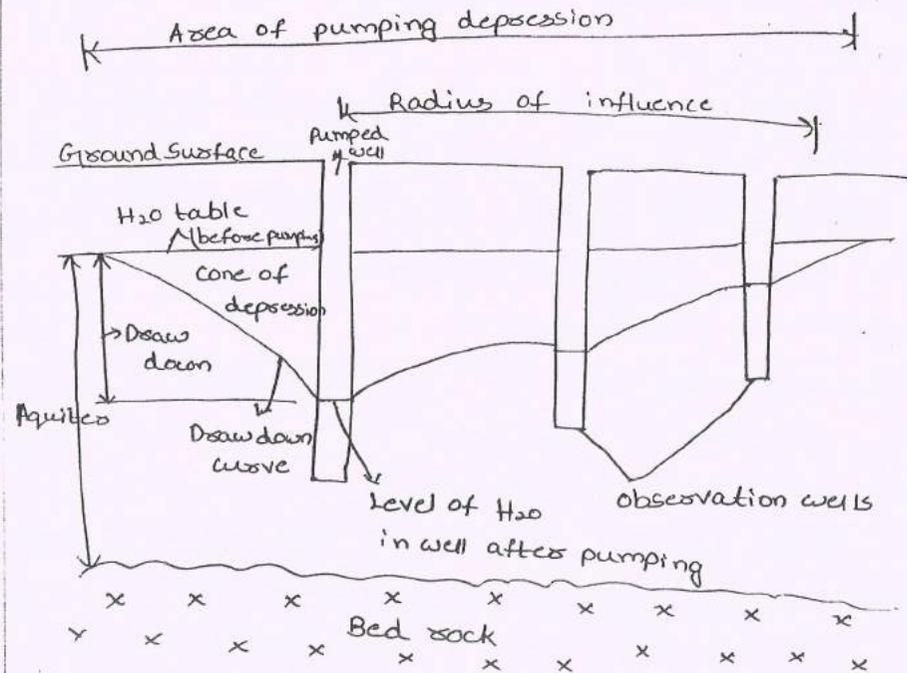 Area of pumping depression
Radius of influence
Pumped
well
Ground Surface
H2O table
before pumping
Cone of
depression
Draw
down
Aquifer
Draw down
curve
Level of H2O
in well after pumping
Observation wells
Bed rock